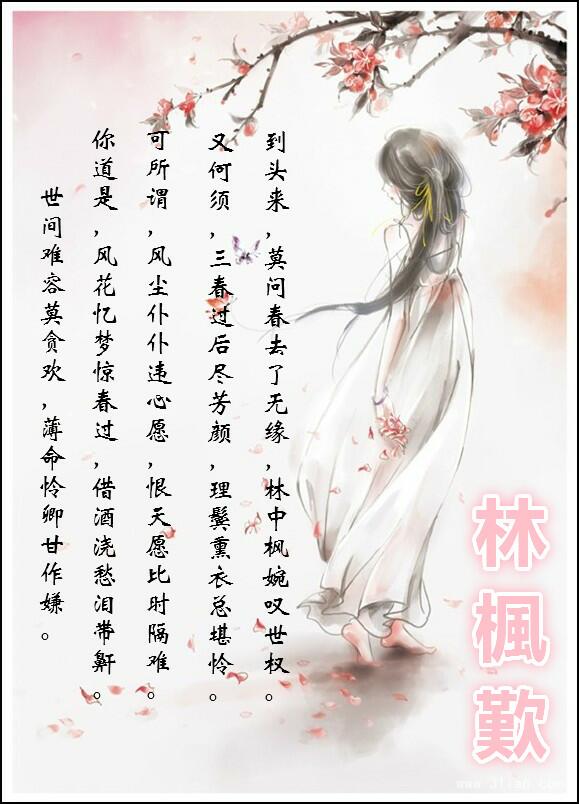 林楓歎
到头来,莫问春去了无缘,林中枫婉叹世权。
又何须,三春过后尽芳颜,理鬓熏衣总堪怜。
可所谓,风尘仆仆违心愿,恨天愿比时隔难。
你道是,风花忆梦惊春过,借酒浇愁泪带鼾。
世间难容莫贪欢,薄命怜卿甘作嫌。